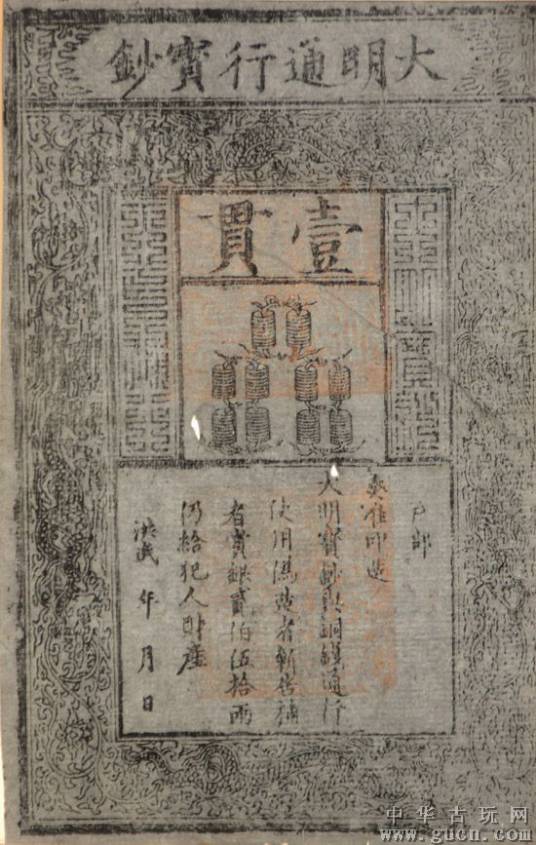 大明通行寶鈔
壹貫
戶部
奏准印造
大明寶鈔與銅錢通行
使用偽造者斬告捕
者賞銀貳伯伍拾兩
仍給犯人財產
洪武 年 月 日
中华古玩网
www.gucn.com